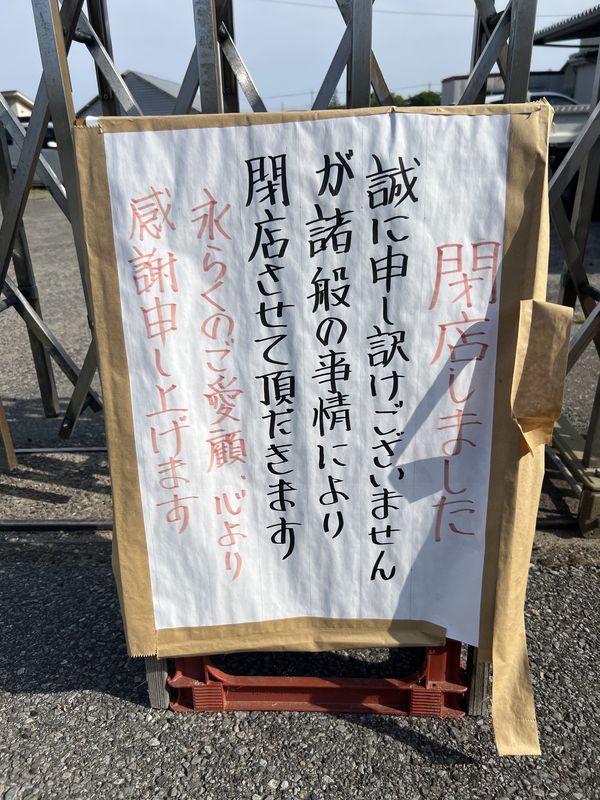 閉店しました
誠に申し訳けございません
が諸般の事情により
閉店させて頂だきます
永らくのご愛顧、心より
感謝申し上げます